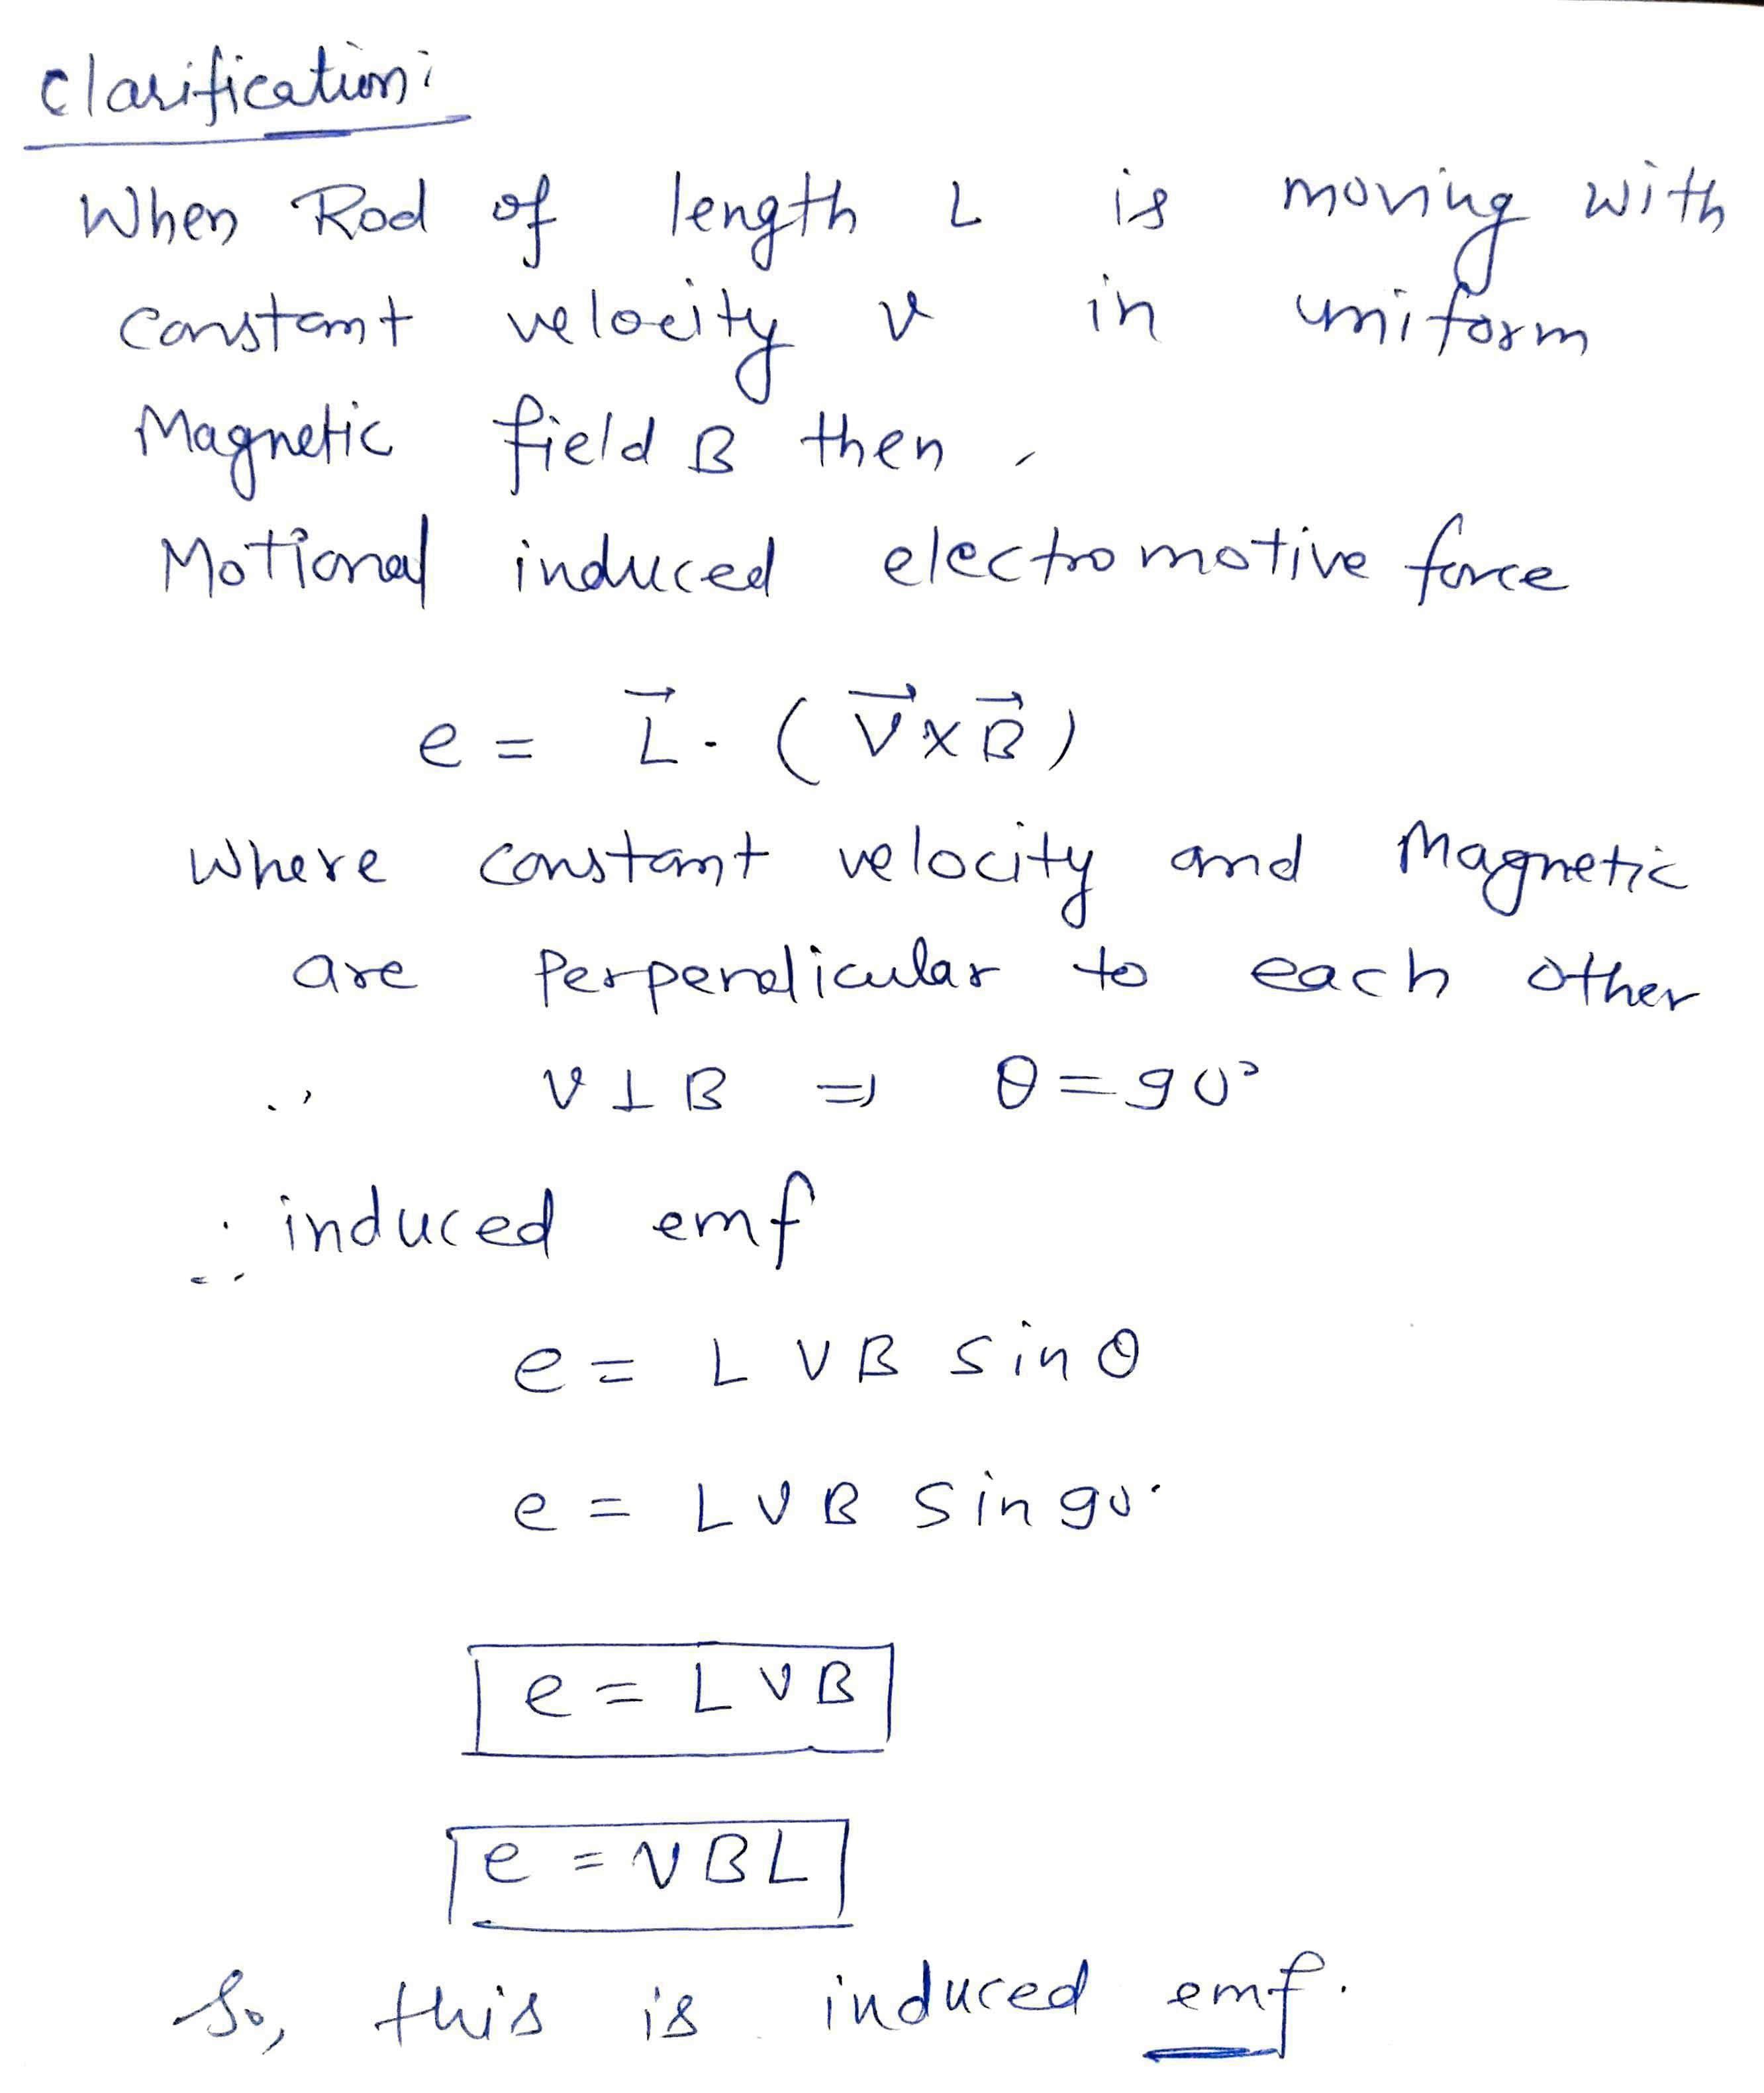 Clarification:
When Rod of length L is moving with
constant velocity v in uniform
Magnetic field B then,
Motional induced electromotive force
e = L⃗ · (V⃗ × B⃗)
Where constant velocity and Magnetic
are Perpendicular to each other
∵ v ⊥ B ⇒ θ = 90°
∴ induced emf
e = L V B sin θ
e = L V B sin 90°
e = L V B
e = V B L
So, this is induced emf.